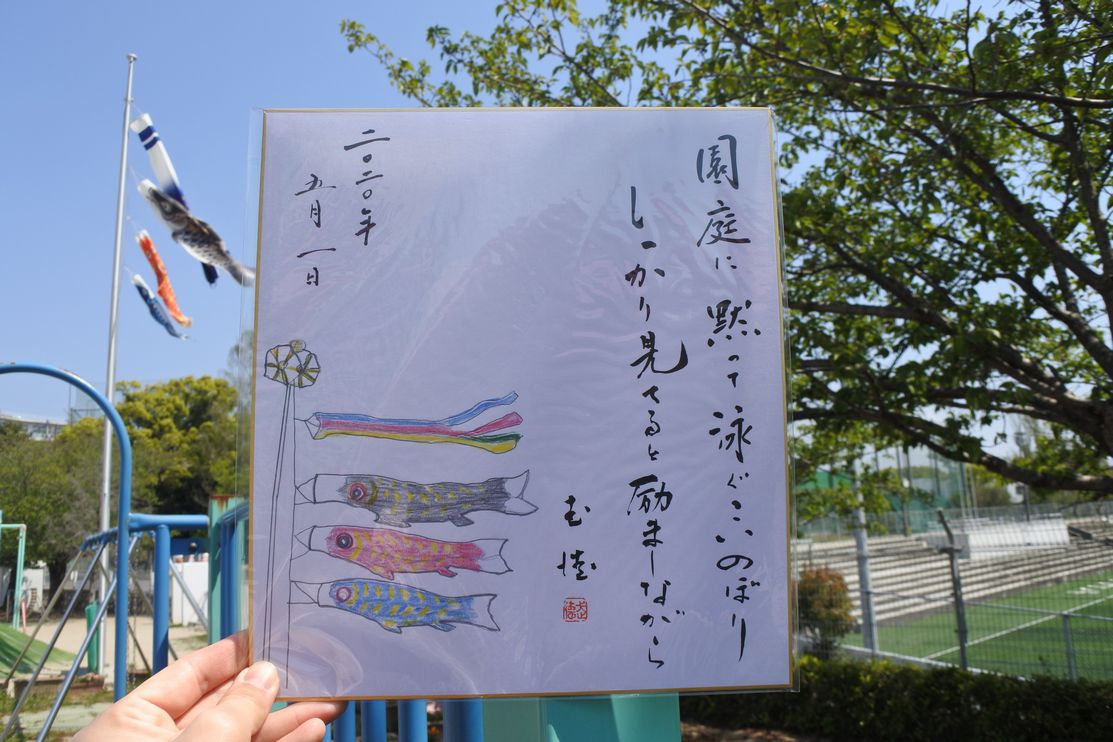 園庭に黙って泳ぐこいのぼり
しっかり見てると励ましながら
二〇二〇年
五月一日